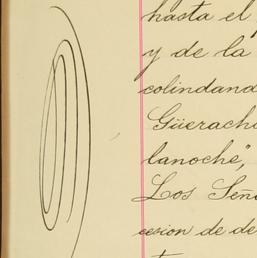 hasta el
y de la
colindand
Güerach
lanoche",
Los Seño
cesion de de